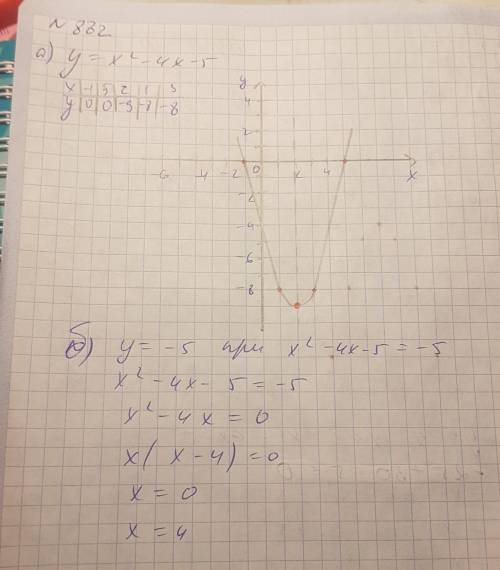 № 832
а) y = x² - 4x - 5
x | -1 | 5 | 2 | 1 | 3
y | 0 | 0 | -9 | -8 | -8
y
4
2
6 -4 -2 0 4 x
-2
-4
-6
-8
б) y = -5 при x² - 4x - 5 = -5
x² - 4x - 5 = -5
x² - 4x = 0
x(x - 4) = 0
x = 0
x = 4